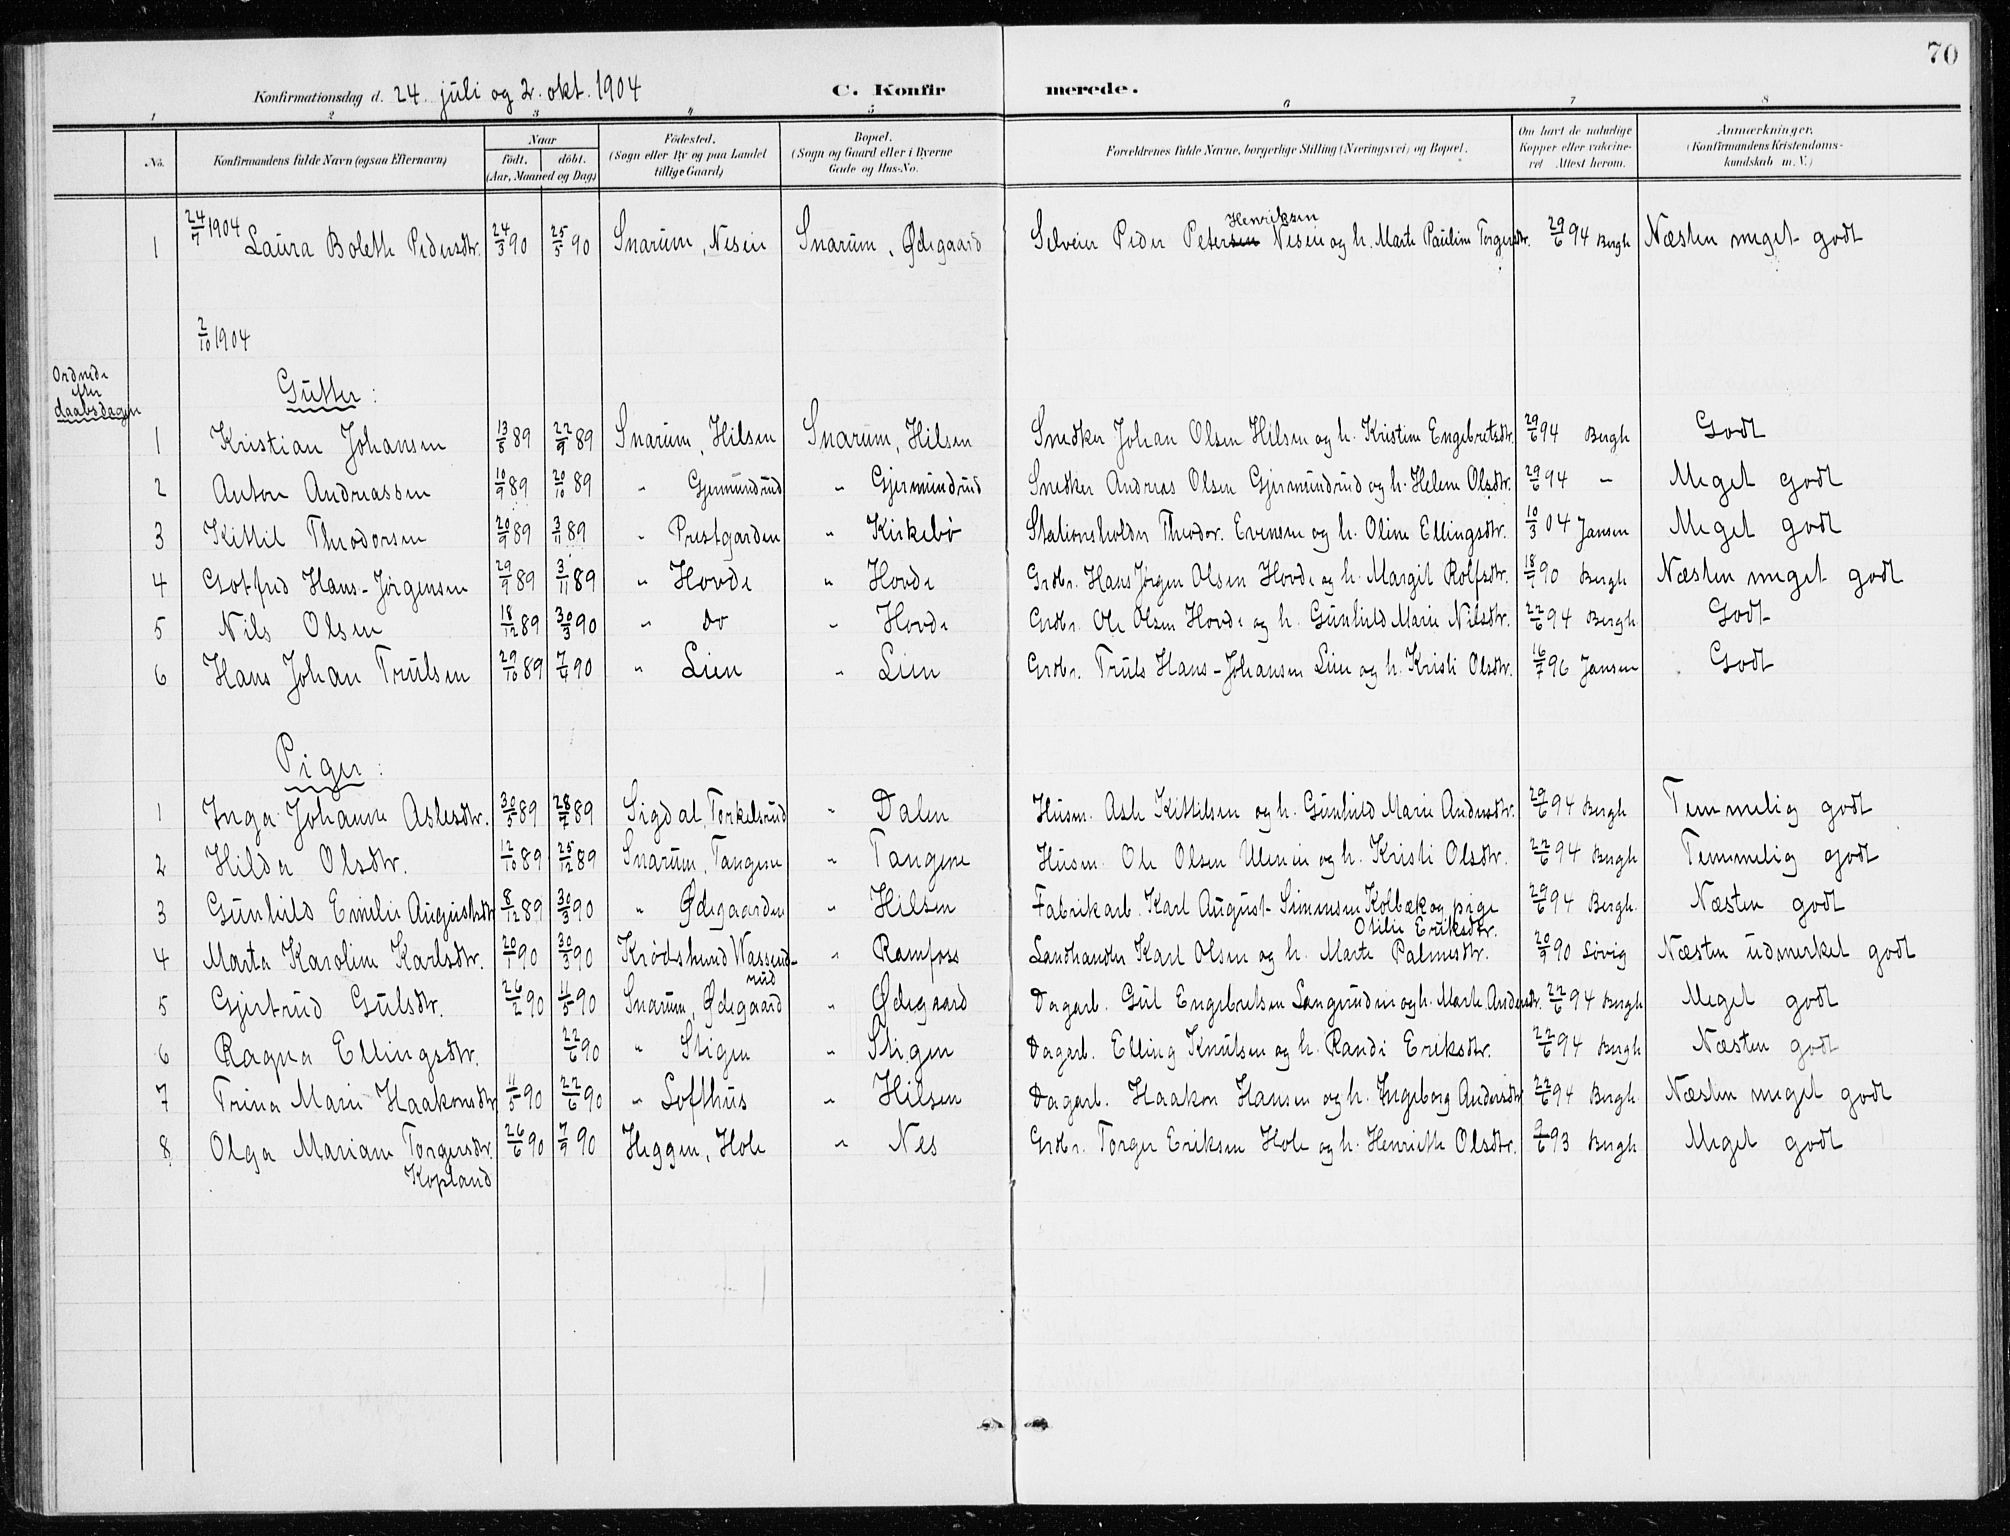 70
Konfirmationsdag d. 24. juli og 2. okt. 1904 C. Konfirmerede.
1 2 3 4 5 6 7 8
No. Konfirmandens fulde Navn (ogsaa Efternavn) Naar født. døbt. (Aar, Maaned og Dag) Fødested. (Sogn eller By og paa Landet tillige Gaard) Bopæl. (Sogn og Gaard eller i Byerne Gade og Hus-No. Forældrenes fulde Navne, borgerlige Stilling (Næringsvei) og Bopæl. Om havt de naturlige Kopper eller vakcineret Attest herom. Anmærkninger. (Konfirmandens Kristendomskundskab m. V.)
24/7 1904
1 Laura Boleth Pedersdtr. 24/3 90 25/5 90 Snarum, Nesen Snarum, Ødegaard Selveier Peder Petersen Henriksen Nesen og h. Marte Pauline Torgersdtr. 29/6 94 Bergh Næsten meget godt
2/10 1904
Ordnede efter daabsdagen
Gutter:
1 Kristian Johansen 13/8 89 22/9 89 Snarum, Hilsen Snarum, Hilsen Snedker Johan Olsen Hilsen og h. Kristine Engebretsdtr. 29/6 94 Bergh Godt
2 Anton Andreassen 10/9 89 20/10 89 " Gjermundrud " Gjermundrud Snedker Andreas Olsen Gjermundrud og h. Helene Olsdtr. 29/6 94 – Meget godt
3 Kittil Theodorsen 20/9 89 3/11 89 " Prestgarden " Kirkebø Stationsholder Theodor Evensen og h. Oline Ellingsdtr. 10/3 04 Jansen Meget godt
4 Gotfred Hans-Jørgensen 29/9 89 3/11 89 " Hovde " Hovde Grdbr. Hans Jørgen Olsen Hovde og h. Margit Rolfsdtr. 18/7 90 Bergh Næsten meget godt
5 Nils Olsen 18/12 89 30/3 90 " do " Hovde Grdbr. Ole Olsen Hovde og h. Gunhild Marie Nilsdtr. 22/6 94 Bergh Godt
6 Hans Johan Trulsen 29/10 89 7/4 90 " Lien " Lien Grdbr. Truls Hans-Johansen Lien og h. Kristi Olsdtr. 16/7 96 Jansen Godt
Piger:
1 Inga Johanne Aslesdtr. 30/5 89 28/7 89 Sigdal, Torkelsrud " Dalen Husm. Asle Kittilsen og h. Gunhild Marie Andersdtr. 29/6 94 Bergh Temmelig godt
2 Hilda Olsdtr. 12/10 89 25/12 89 Snarum, Tangene " Tangene Husm. Ole Olsen Ulenin og h. Kristi Olsdtr. 22/6 94 Bergh Temmelig godt
3 Gunhild Emilie Augustsdtr 8/12 89 30/3 90 " Ødegaarden " Hilsen Fabrikarb. Karl August Simensen Kolbæk og pige Otilie Eriksdtr. 29/6 94 Bergh Næsten godt
4 Marta Karoline Karlsdtr. 20/1 90 30/3 90 Krødsherred Wassendrud " Ramfoss Landhandler Karl Olsen og h. Marte Palmesdtr. 20/9 90 Søvig Næsten udmerket godt
5 Gjertrud Gulsdtr. 26/2 90 11/5 90 Snarum, Ødegaard " Ødegaard Dagarb. Gul Engebretsen Langrudeie og h. Marte Andersdtr. 22/6 94 Bergh Meget godt
6 Ragna Ellingsdtr. 22/6 90 " Stigen " Stigen Dagarb. Elling Knutsen og h. Randi Eriksdtr. 22/6 94 Bergh Næsten godt
7 Trina Marie Haakonsdtr 11/5 90 22/6 90 " Lofthus " Hilsen Dagarb. Haakon Hansen og h. Ingeborg Andersdtr 22/6 94 Bergh Næsten meget godt
8 Olga Mariane Torgersdtr. Kopland 26/6 90 7/9 90 Heggen, Hole " Nes Grdbr. Torger Eriksen Hole og h. Henriette Olsdtr. 9/6 93 Bergh Meget godt